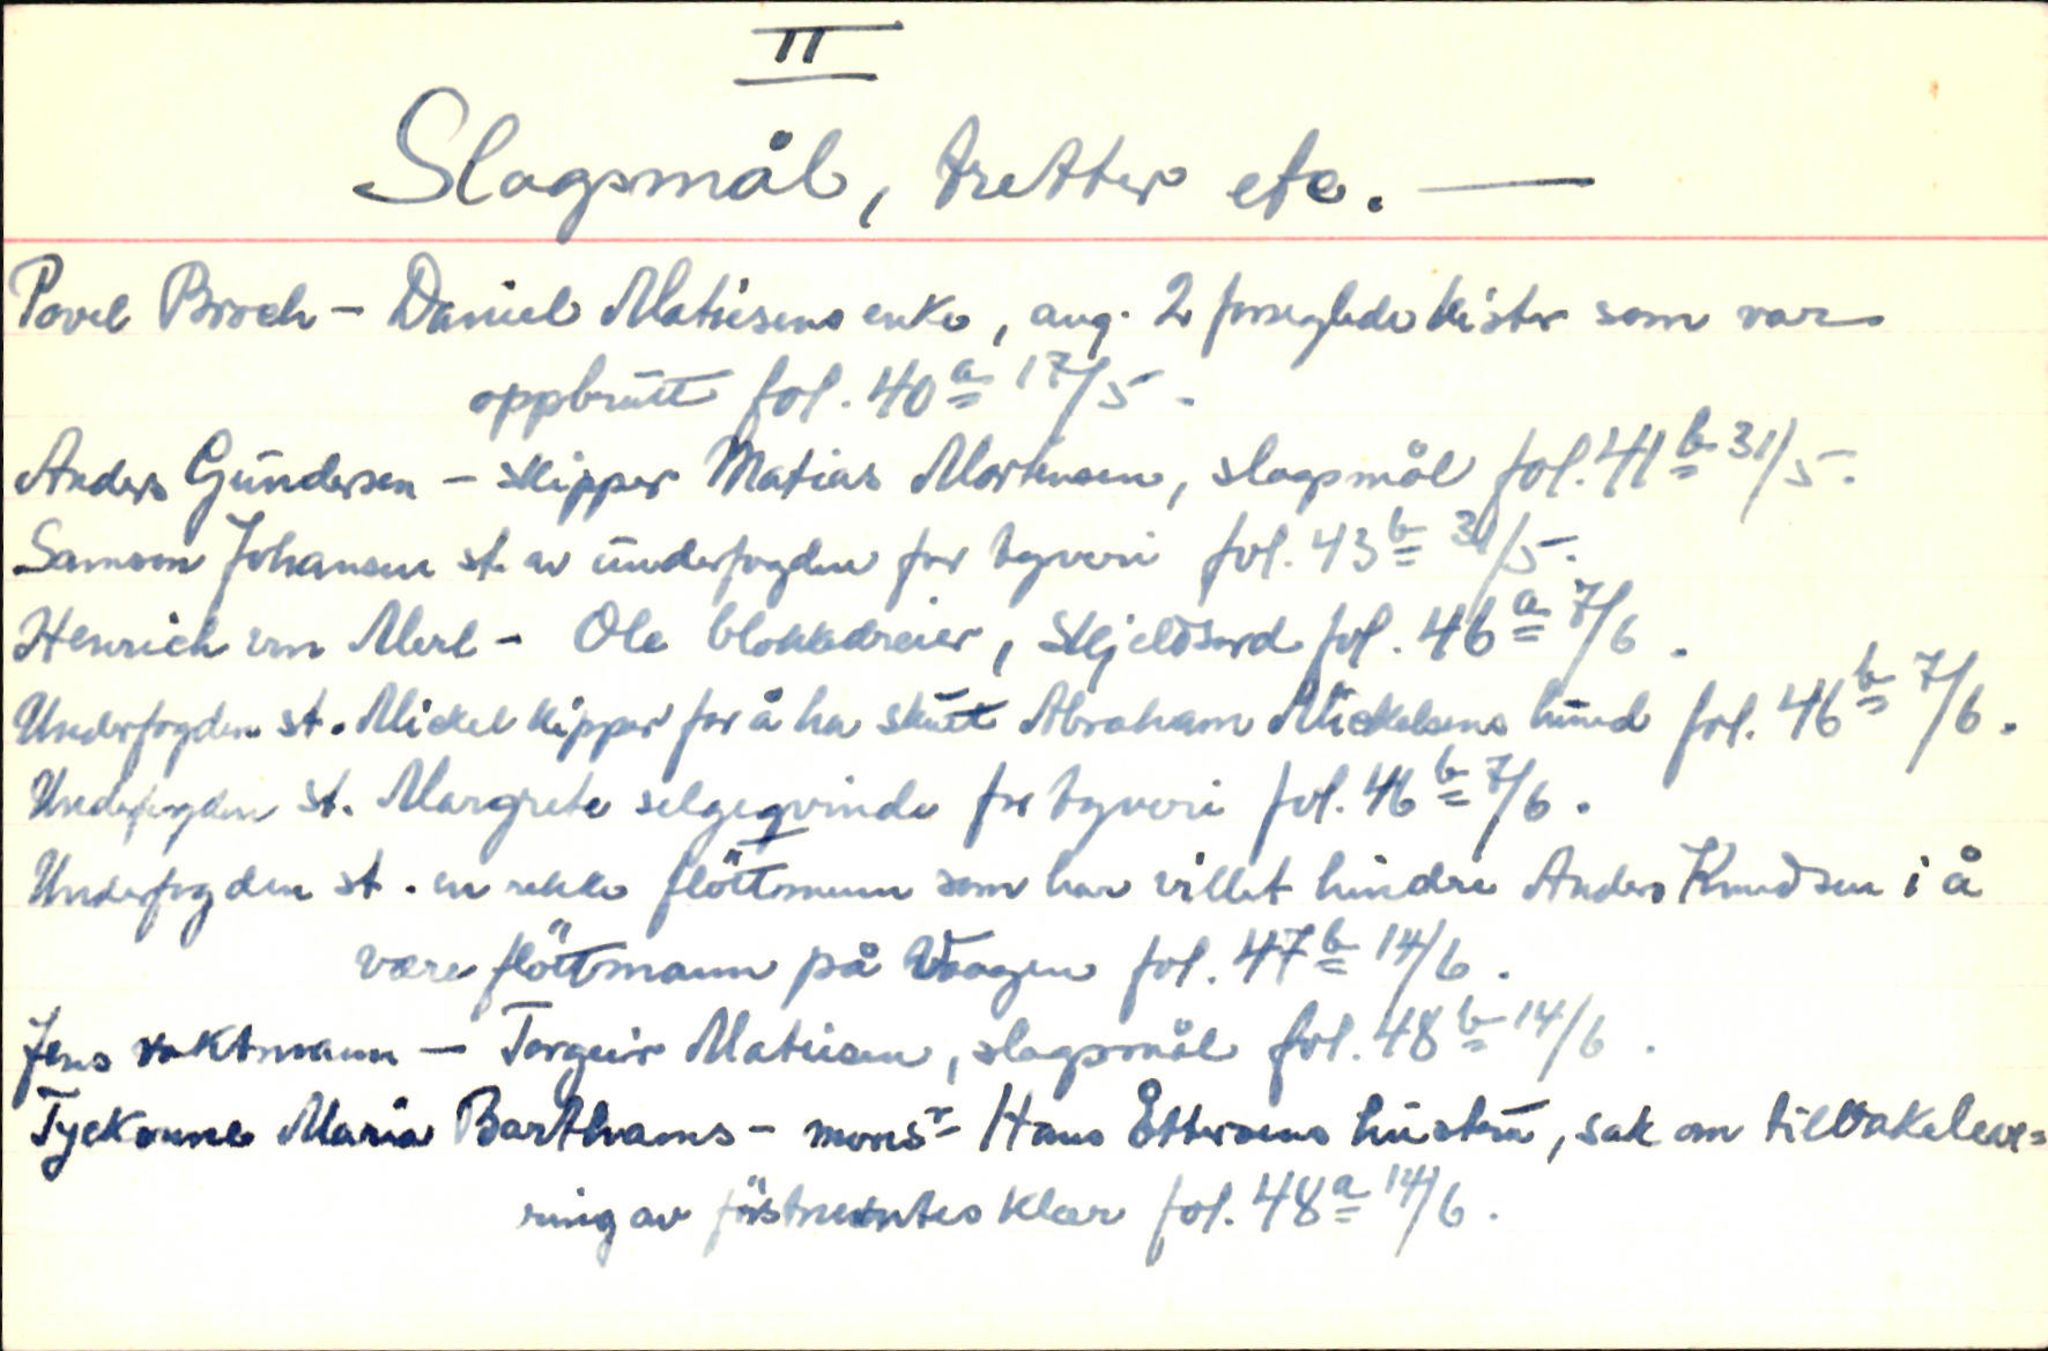 II
Slagsmål, tretter etc. —
Povel Broch - Daniel Matiesens enke, ang. 2 forseglede kister som var
oppbrutt fol. 40a 17/5.
Anders Gundersen - skipper Matias Mortensen, slagsmål fol. 41b 31/5.
Samson Johansen st. av underfogden for tyveri fol. 43b 31/5.
Henrich von Merl - Ole blokkdreier, skjeldsord fol. 46a 7/6.
Underfogden st. Mickel kipper for å ha skutt Abraham Mickelsens hund fol. 46b 7/6.
Underfogden st. Margrete selgeqvinde for tyveri fol. 46b 7/6.
Underfogden st. en rekke flöttmenn som har villet hindre Anders Knudsen i å
være flöttmann på Vaagen fol. 47b 14/6.
Jens vaktmann - Torgeir Matiesen, slagsmål fol. 48b 14/6.
Tyckonne Maria Barthrams - monsr Hans Ettersens hustru, sak om tilbakelevæ=
ring av förstnevntes klær fol. 48a 14/6.